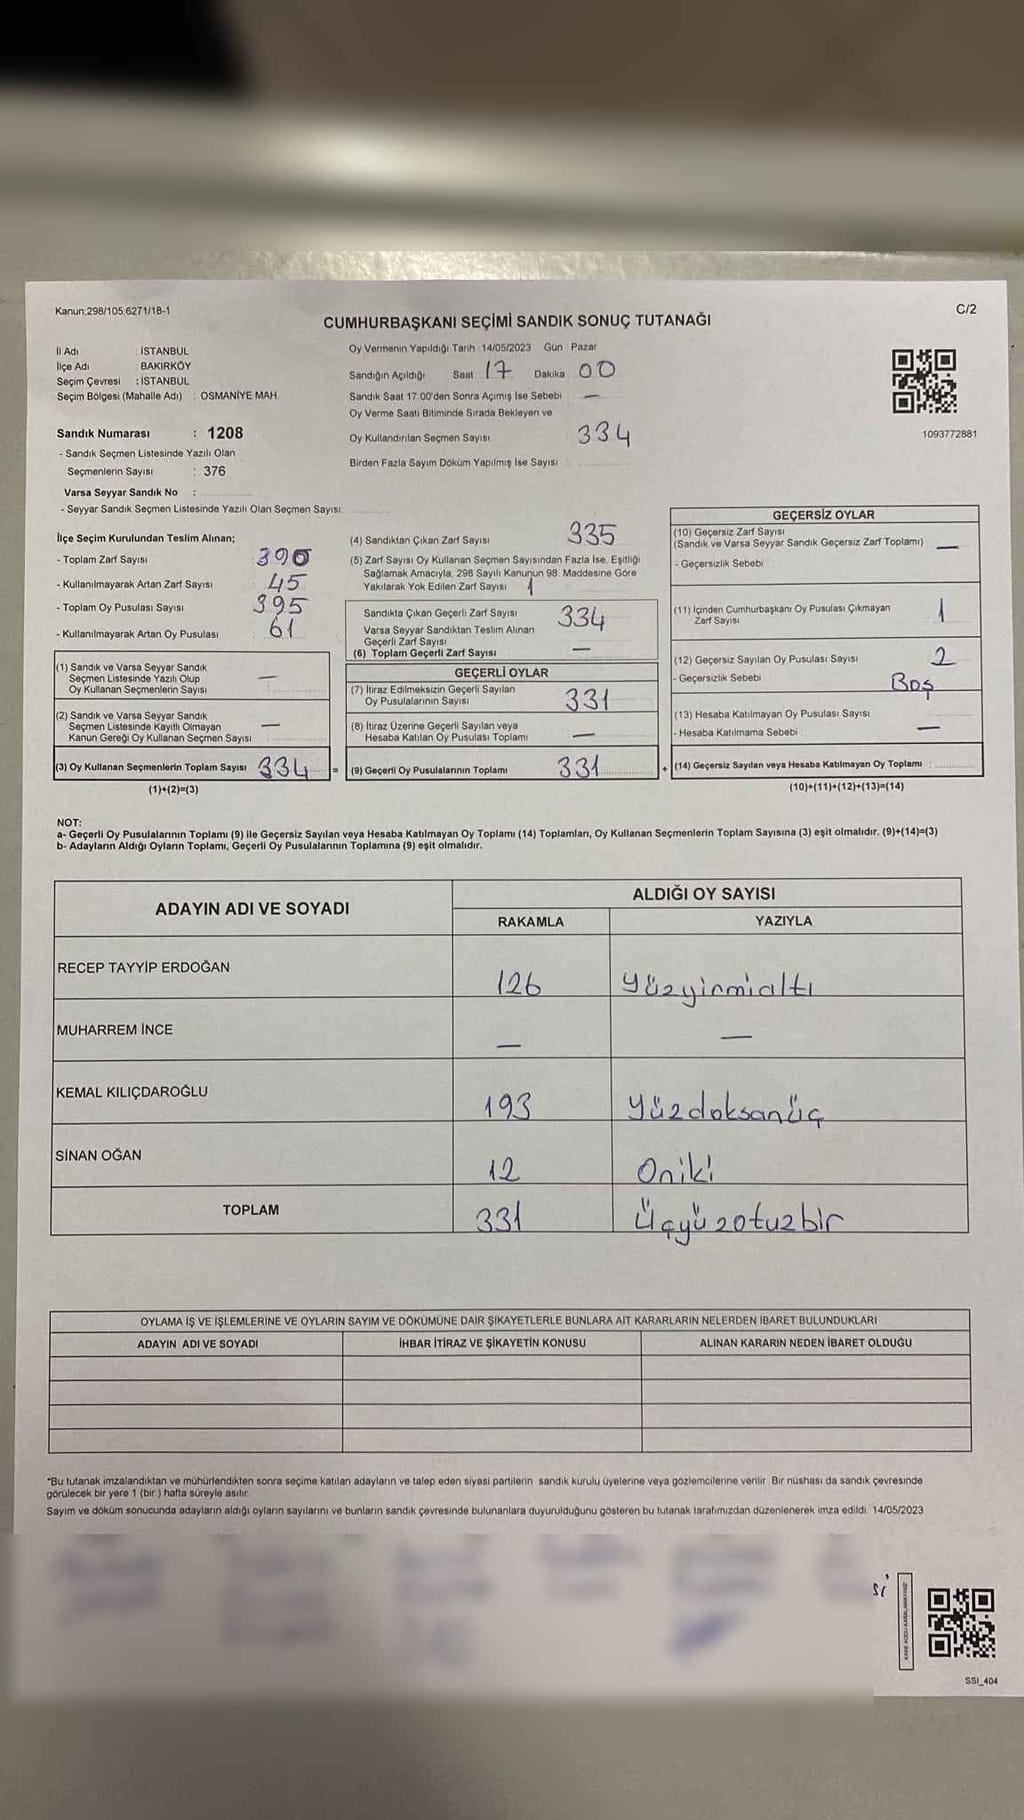 Kanun;298/105;6271/18-1
C/2
CUMHURBAŞKANI SEÇİMİ SANDIK SONUÇ TUTANAĞI
İl Adı : İSTANBUL
İlçe Adı : BAKIRKÖY
Seçim Çevresi : İSTANBUL
Seçim Bölgesi (Mahalle Adı) : OSMANİYE MAH.
Sandık Numarası : 1208
- Sandık Seçmen Listesinde Yazılı Olan
Seçmenlerin Sayısı : 376
Varsa Seyyar Sandık No :
- Seyyar Sandık Seçmen Listesinde Yazılı Olan Seçmen Sayısı:
Oy Vermenin Yapıldığı Tarih 14/05/2023 Gün Pazar
Sandığın Açıldığı Saat 17 Dakika 00
Sandık Saat 17.00'den Sonra Açımış İse Sebebi —
Oy Verme Saati Bitiminde Sırada Bekleyen ve
Oy Kullandırılan Seçmen Sayısı 334
Birden Fazla Sayım Döküm Yapılmış İse Sayısı
1093772881
İlçe Seçim Kurulundan Teslim Alınan;
- Toplam Zarf Sayısı 390
- Kullanılmayarak Artan Zarf Sayısı 45
- Toplam Oy Pusulası Sayısı 395
- Kullanılmayarak Artan Oy Pusulası 61
(1) Sandık ve Varsa Seyyar Sandık
Seçmen Listesinde Yazılı Olup
Oy Kullanan Seçmenlerin Sayısı —
(2) Sandık ve Varsa Seyyar Sandık
Seçmen Listesinde Kayıtlı Olmayan
Kanun Gereği Oy Kullanan Seçmen Sayısı —
(3) Oy Kullanan Seçmenlerin Toplam Sayısı 334 =
(1)+(2)=(3)
(4) Sandıktan Çıkan Zarf Sayısı 335
(5) Zarf Sayısı Oy Kullanan Seçmen Sayısından Fazla İse, Eşitliği
Sağlamak Amacıyla, 298 Sayılı Kanunun 98. Maddesine Göre
Yakılarak Yok Edilen Zarf Sayısı 1
Sandıkta Çıkan Geçerli Zarf Sayısı 334
Varsa Seyyar Sandıktan Teslim Alınan
Geçerli Zarf Sayısı
(6) Toplam Geçerli Zarf Sayısı —
GEÇERLİ OYLAR
(7) İtiraz Edilmeksizin Geçerli Sayılan
Oy Pusulalarının Sayısı 331
(8) İtiraz Üzerine Geçerli Sayılan veya
Hesaba Katılan Oy Pusulası Toplamı —
(9) Geçerli Oy Pusulalarının Toplamı 331 +
GEÇERSİZ OYLAR
(10) Geçersiz Zarf Sayısı
(Sandık ve Varsa Seyyar Sandık Geçersiz Zarf Toplamı) —
- Geçersizlik Sebebi
(11) İçinden Cumhurbaşkanı Oy Pusulası Çıkmayan
Zarf Sayısı 1
(12) Geçersiz Sayılan Oy Pusulası Sayısı 2
- Geçersizlik Sebebi Boş
(13) Hesaba Katılmayan Oy Pusulası Sayısı
- Hesaba Katılmama Sebebi —
(14) Geçersiz Sayılan veya Hesaba Katılmayan Oy Toplamı :
(10)+(11)+(12)+(13)=(14)
NOT:
a- Geçerli Oy Pusulalarının Toplamı (9) ile Geçersiz Sayılan veya Hesaba Katılmayan Oy Toplamı (14) Toplamları, Oy Kullanan Seçmenlerin Toplam Sayısına (3) eşit olmalıdır. (9)+(14)=(3)
b- Adayların Aldığı Oyların Toplamı, Geçerli Oy Pusulalarının Toplamına (9) eşit olmalıdır.
ADAYIN ADI VE SOYADI
ALDIĞI OY SAYISI
RAKAMLA YAZIYLA
RECEP TAYYİP ERDOĞAN 126 Yüzyirmialtı
MUHARREM İNCE — —
KEMAL KILIÇDAROĞLU 193 Yüzdoksanüç
SİNAN OĞAN 12 Oniki
TOPLAM 331 Üçyüzotuzbir
OYLAMA İŞ VE İŞLEMLERİNE VE OYLARIN SAYIM VE DÖKÜMÜNE DAİR ŞİKAYETLERLE BUNLARA AİT KARARLARIN NELERDEN İBARET BULUNDUKLARI
ADAYIN ADI VE SOYADI İHBAR İTİRAZ VE ŞİKAYETİN KONUSU ALINAN KARARIN NEDEN İBARET OLDUĞU
*Bu tutanak imzalandıktan ve mühürlendikten sonra seçime katılan adayların ve talep eden siyasi partilerin sandık kurulu üyelerine veya gözlemcilerine verilir. Bir nüshası da sandık çevresinde
görülecek bir yere 1 (bir) hafta süreyle asılır.
Sayım ve döküm sonucunda adayların aldığı oyların sayılarını ve bunların sandık çevresinde bulunanlara duyurulduğunu gösteren bu tutanak tarafımızdan düzenlenerek imza edildi. 14/05/2023
si
SSI_404